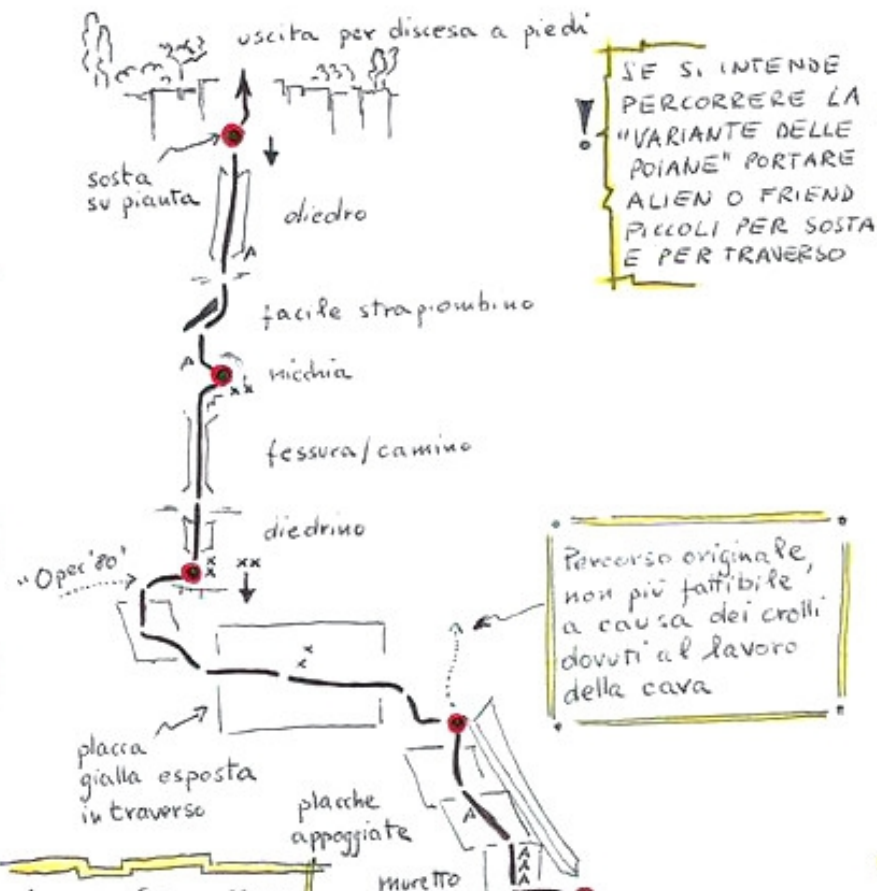 uscita per discesa a piedi
SE SI INTENDE
PERCORRERE LA
"VARIANTE DELLE
POIANE" PORTARE
ALIEN O FRIEND
PICCOLI PER SOSTA
E PER TRAVERSO
!
sosta
su pianta
diedro
A
facile strapiombino
A
nicchia
xx
fessura/camino
diedrino
"Opec '80"
x
x
xx
Percorso originale,
non più fattibile
a causa dei crolli
dovuti al lavoro
della cava
x
x
placca
gialla esposta
in traverso
placche
appoggiate
A
muretto
A
A
A